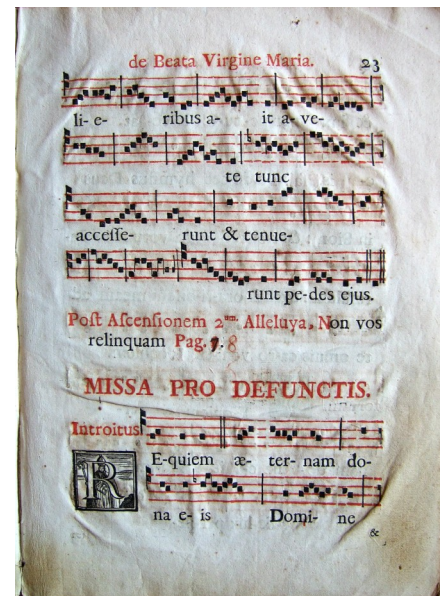 de Beata Virgine Maria. 23
li- e- ribus a- it a- ve-
te tunc
acceſſe- runt & tenue-
runt pe-des ejus.
Poſt Aſcenſionem 2am. Alleluya, Non vos
relinquam Pag. 8
MISSA PRO DEFUNCTIS.
Introitus
RE-quiem æ- ter- nam do-
na e- is Domi- ne
&